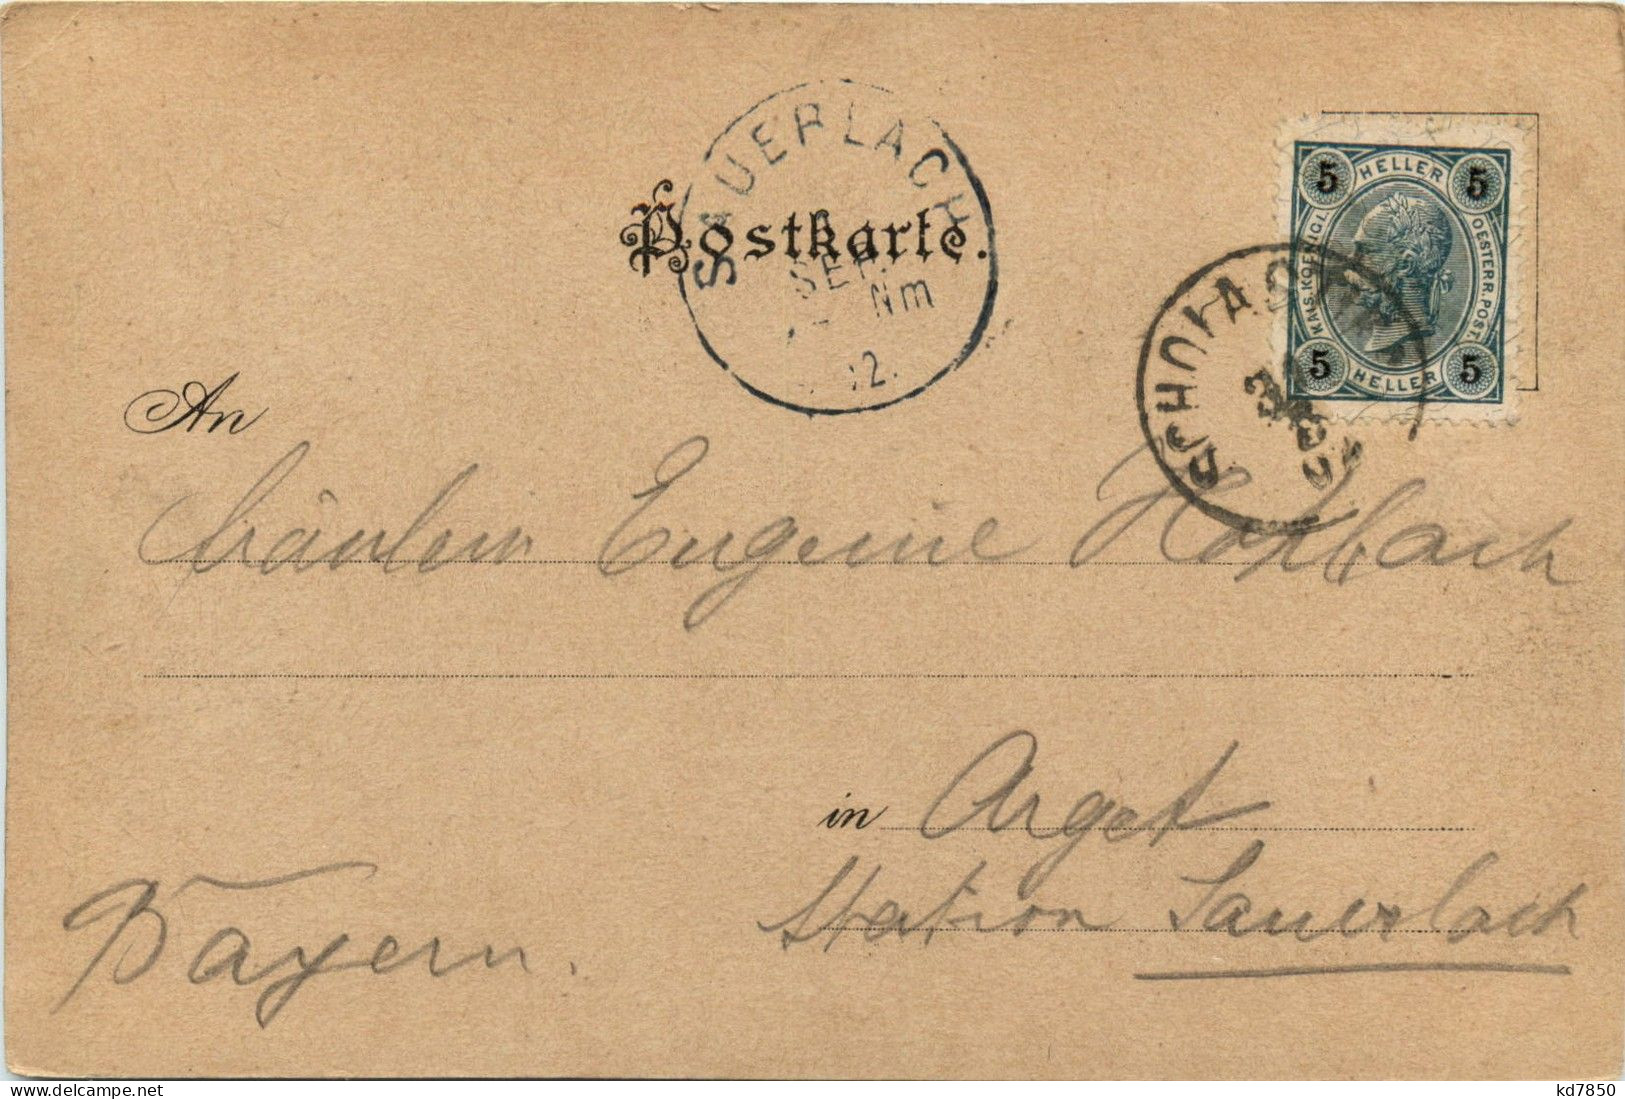 SAUERLACH
SEP.
Nm
Postkarte.
5 HELLER 5
KAIS. KOENIGL. OESTERR. POST.
5 HELLER 5
An
Fräulein Eugenie
in Arget
Station Sauerlach
Bayern.
www.delcampe.net
kd7850